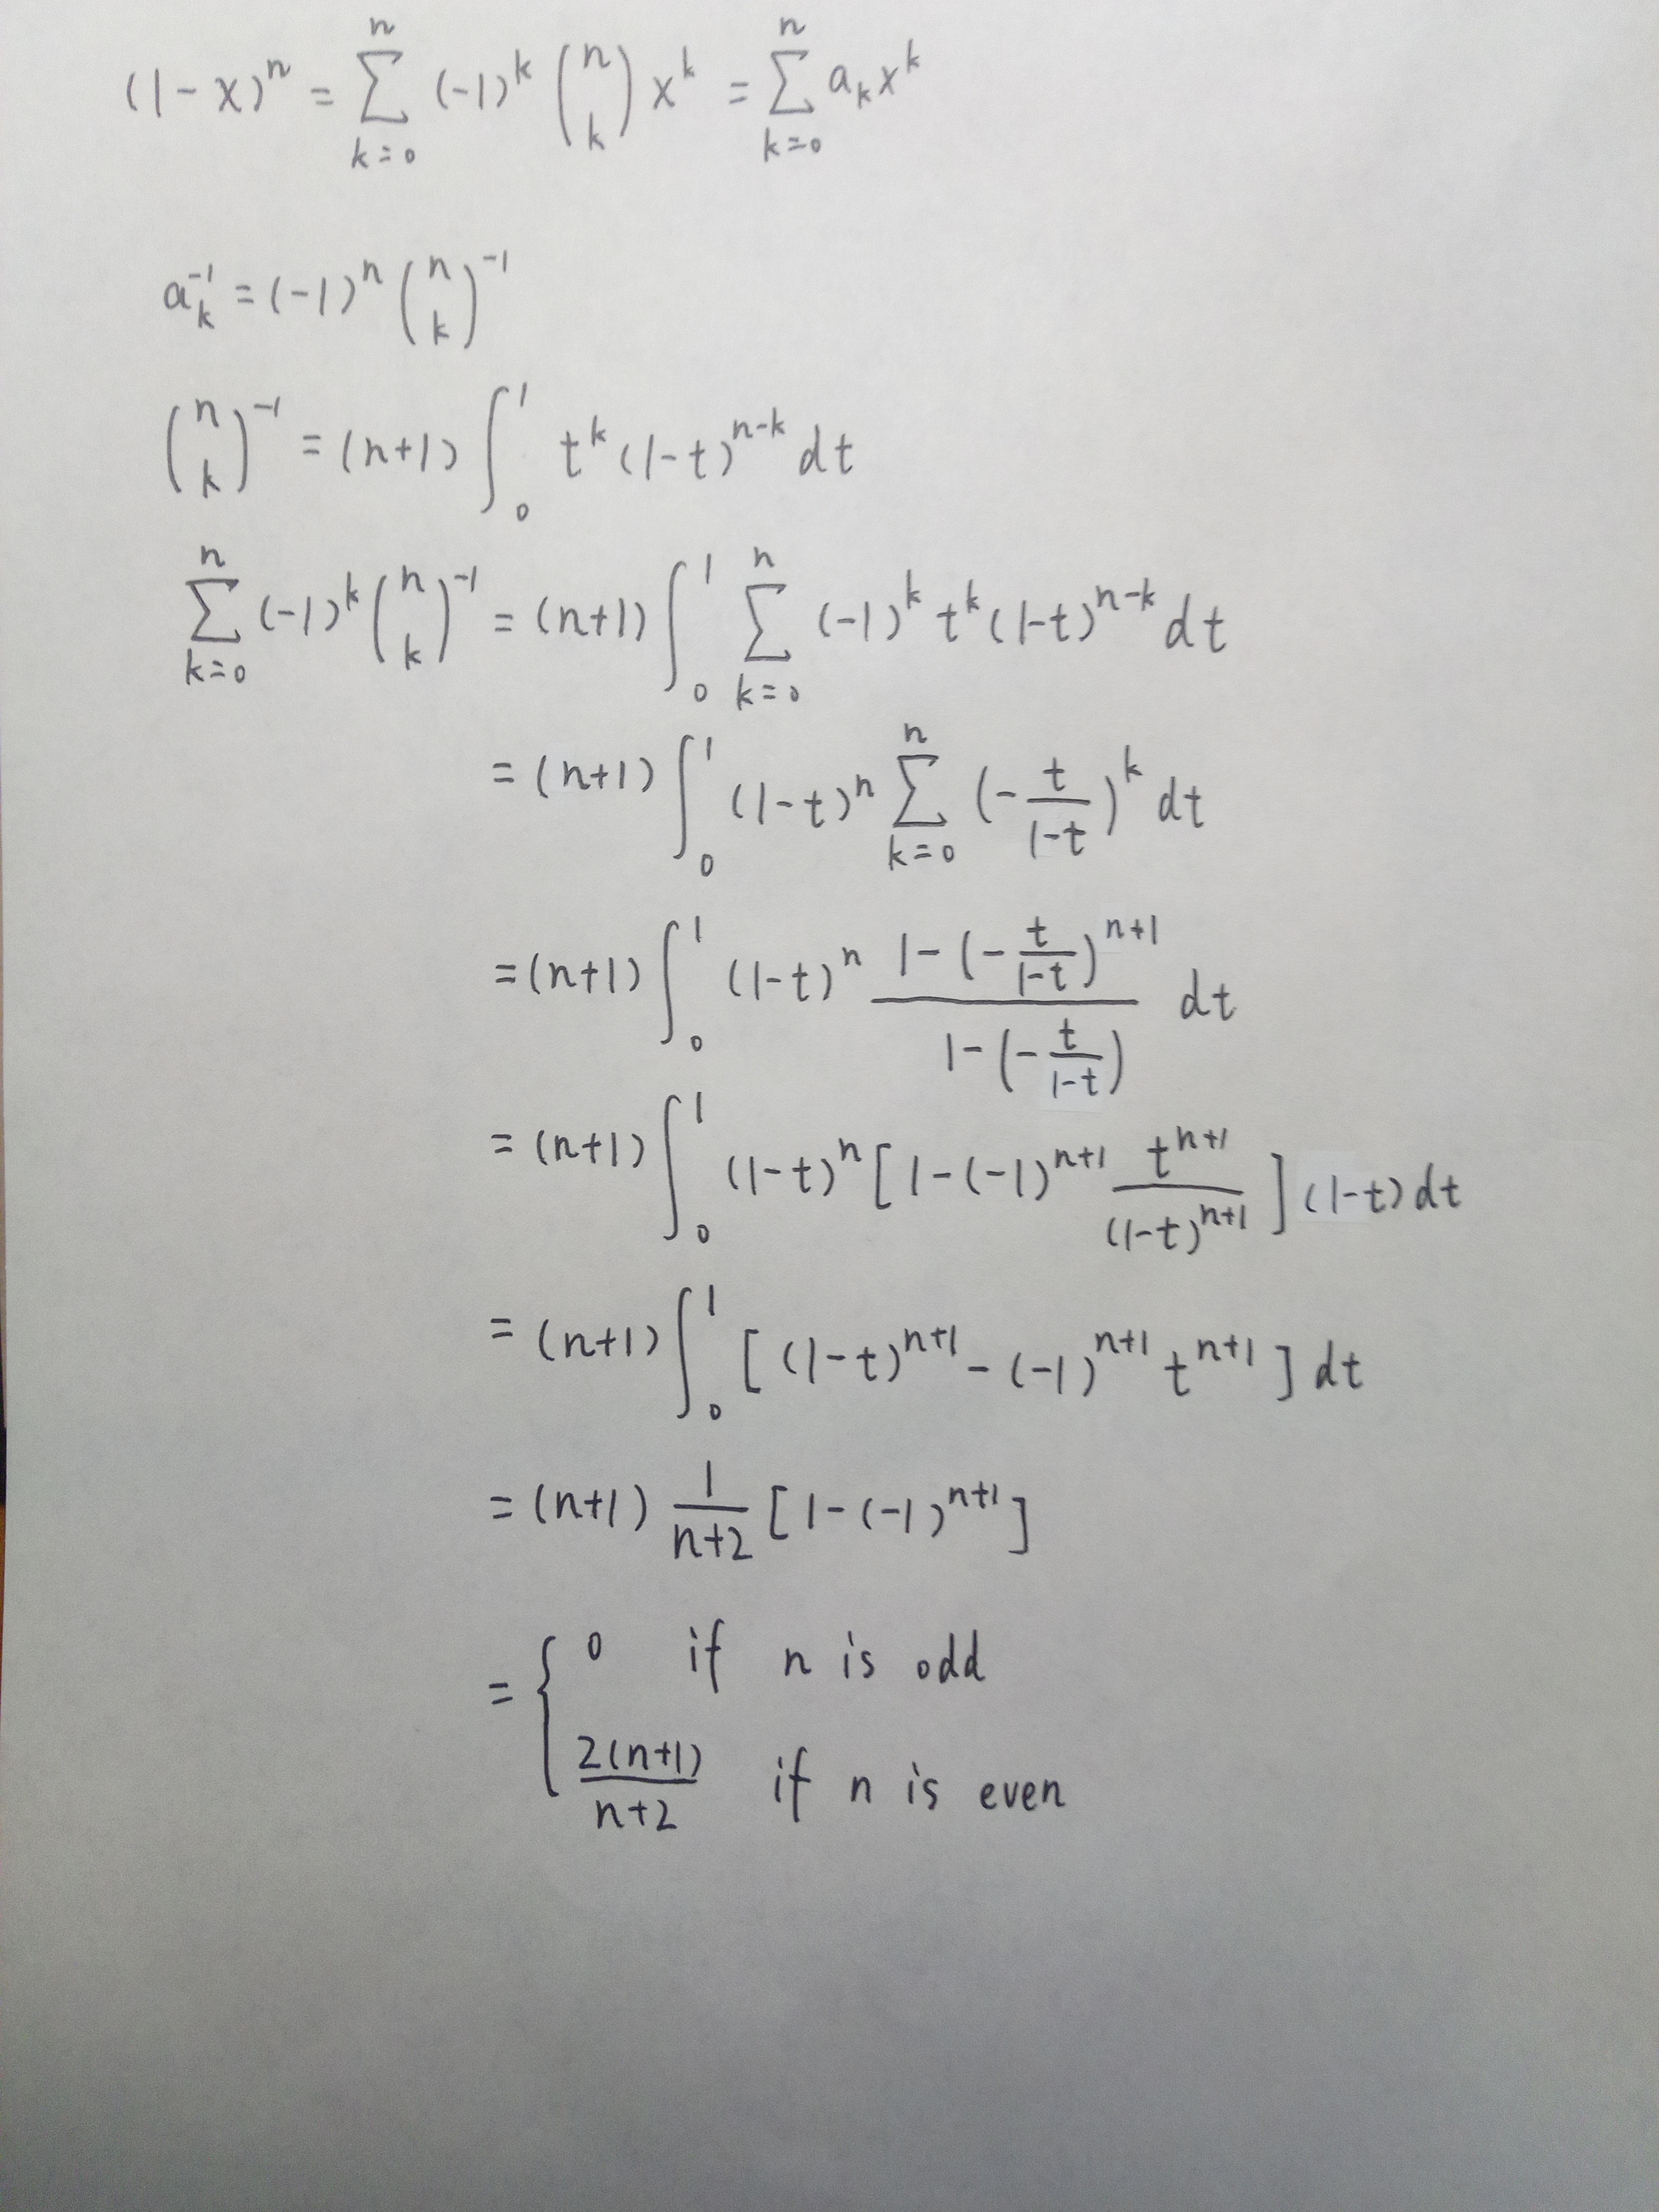 (1-x)^n = \sum_{k=0}^{n} (-1)^k \binom{n}{k} x^k = \sum_{k=0}^{n} a_k x^k
a_k^{-1} = (-1)^n \binom{n}{k}^{-1}
\binom{n}{k}^{-1} = (n+1) \int_0^1 t^k (1-t)^{n-k} dt
\sum_{k=0}^{n} (-1)^k \binom{n}{k}^{-1} = (n+1) \int_0^1 \sum_{k=0}^{n} (-1)^k t^k (1-t)^{n-k} dt
= (n+1) \int_0^1 (1-t)^n \sum_{k=0}^{n} (-\frac{t}{1-t})^k dt
= (n+1) \int_0^1 (1-t)^n \frac{1-(-\frac{t}{1-t})^{n+1}}{1-(-\frac{t}{1-t})} dt
= (n+1) \int_0^1 (1-t)^n [1-(-1)^{n+1} \frac{t^{n+1}}{(1-t)^{n+1}}] (1-t) dt
= (n+1) \int_0^1 [(1-t)^{n+1} - (-1)^{n+1} t^{n+1}] dt
= (n+1) \frac{1}{n+2} [1-(-1)^{n+1}]
= \begin{cases} 0 & if n is odd \\
\frac{2(n+1)}{n+2} & if n is even \end{cases}